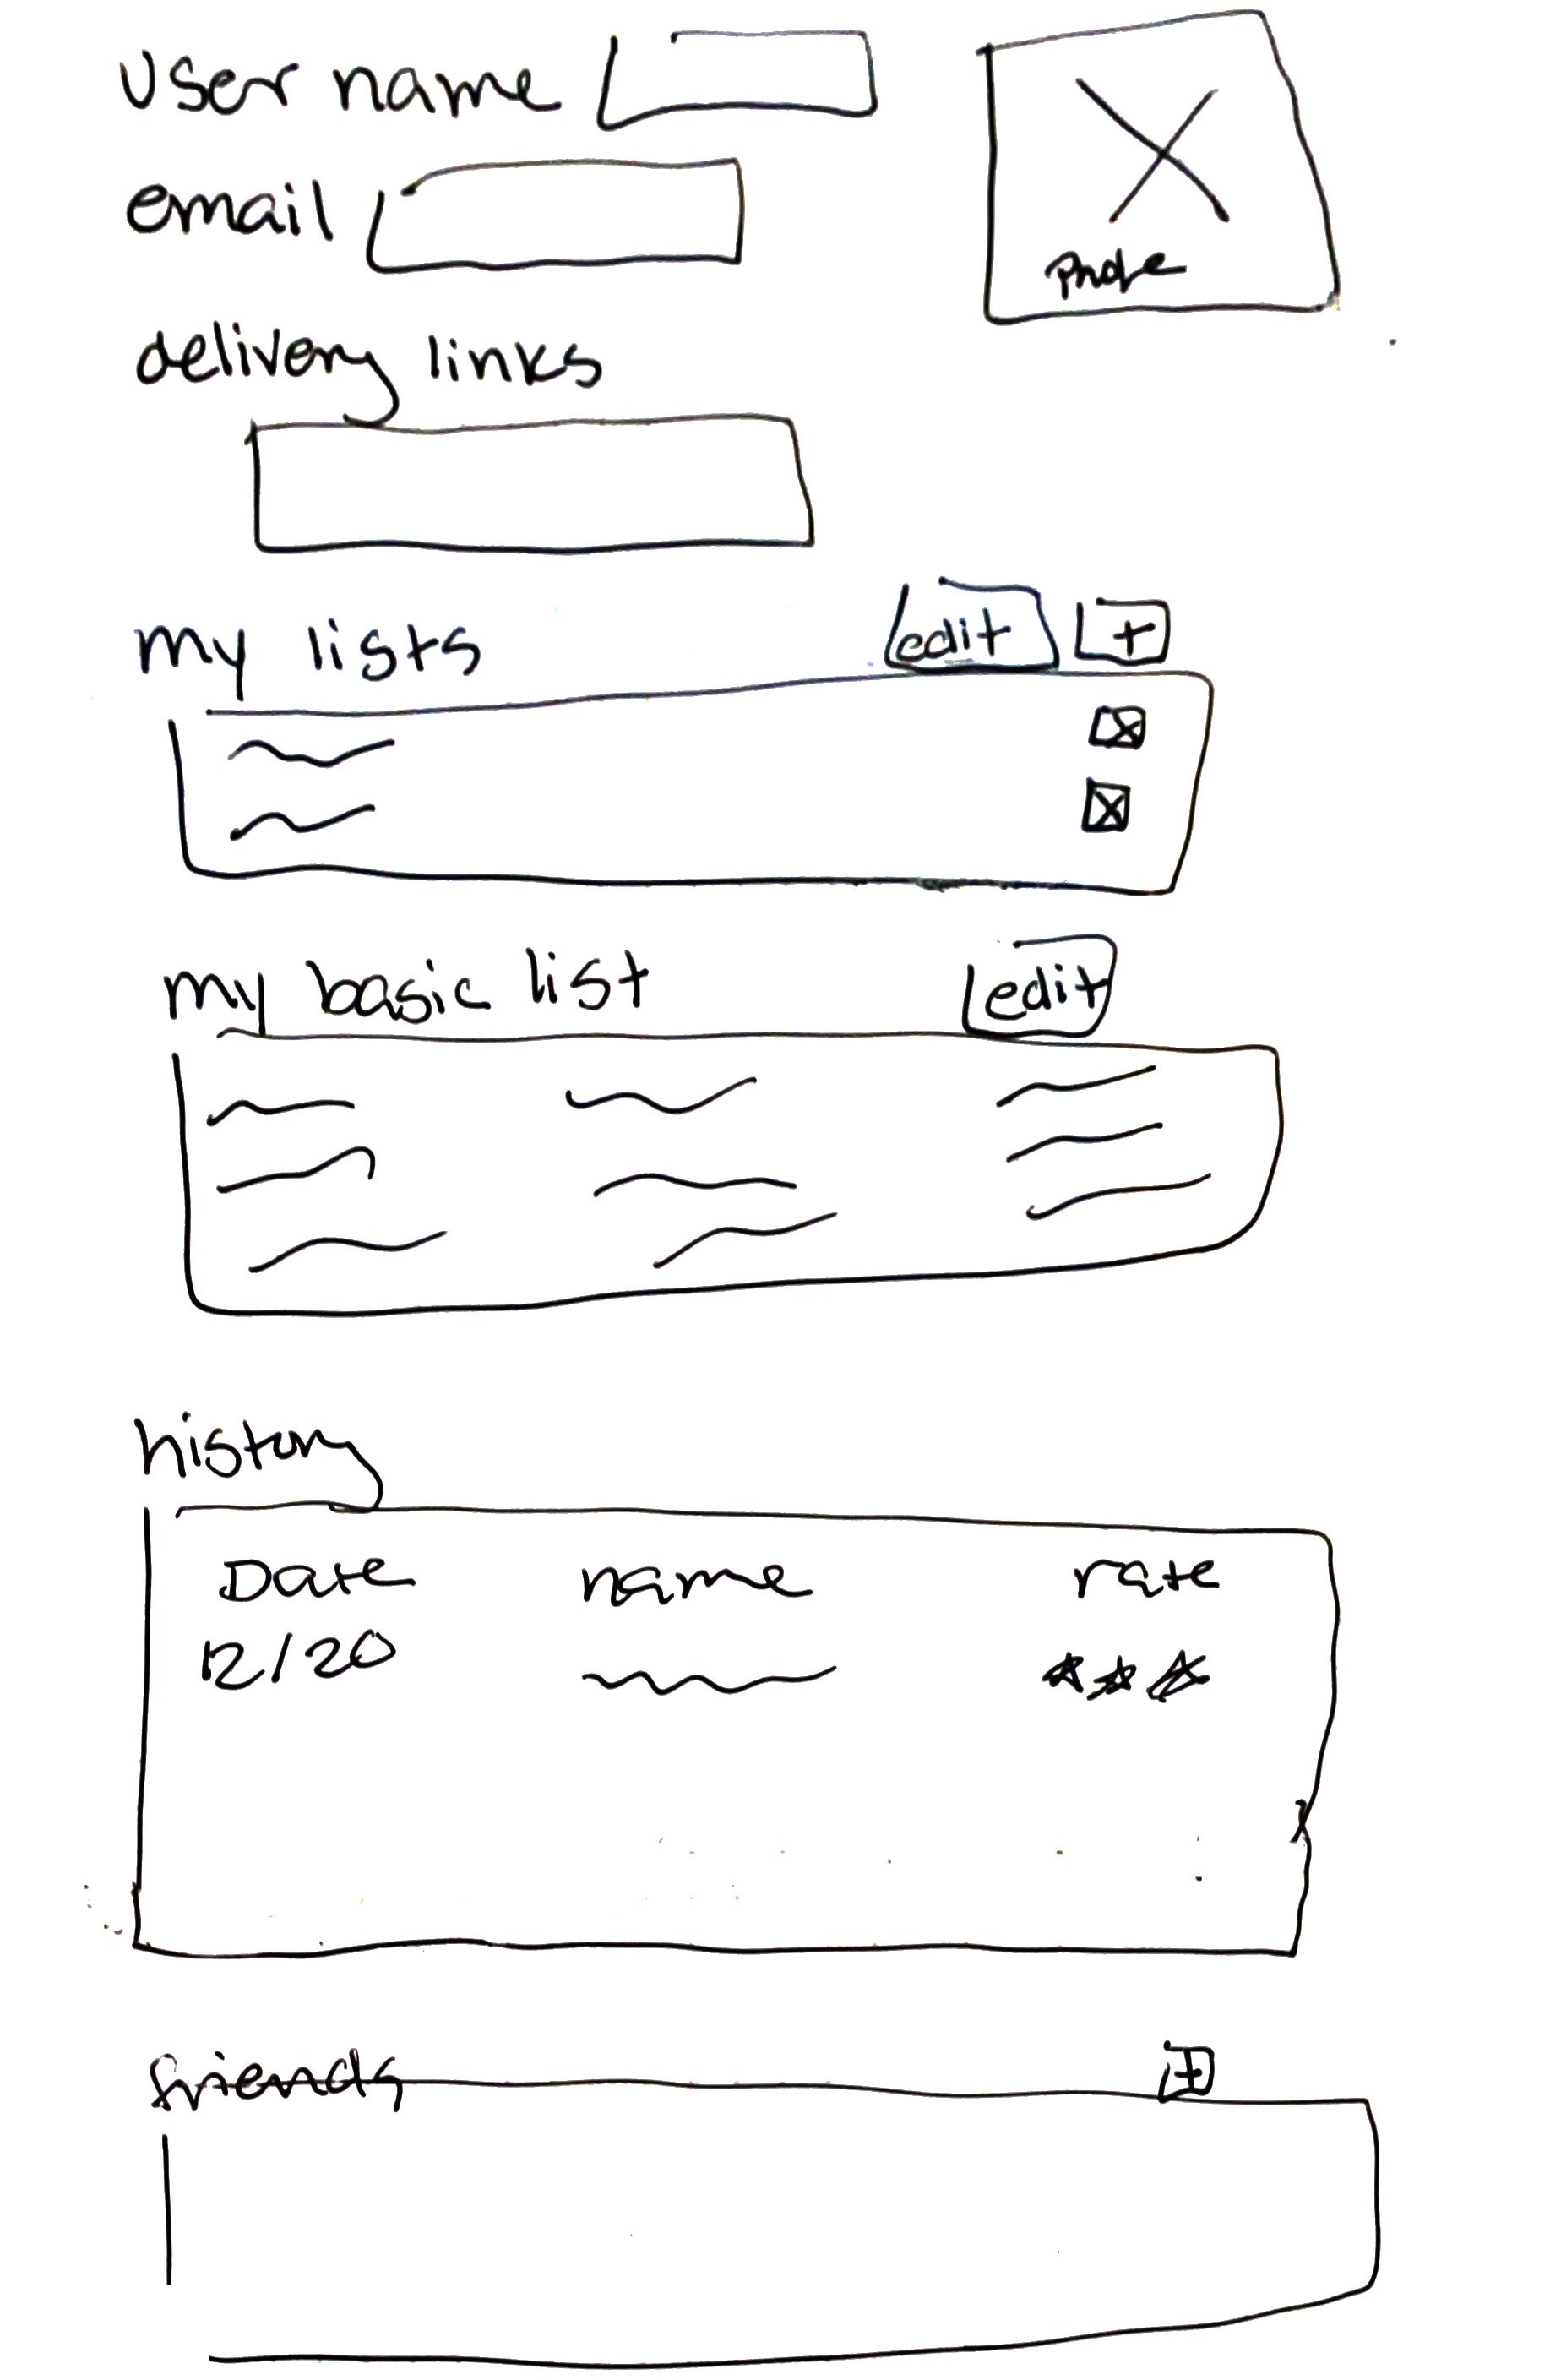 User name
email
delivery links
my lists edit +
my basic list edit
history
Date name rate
12/20
friends +